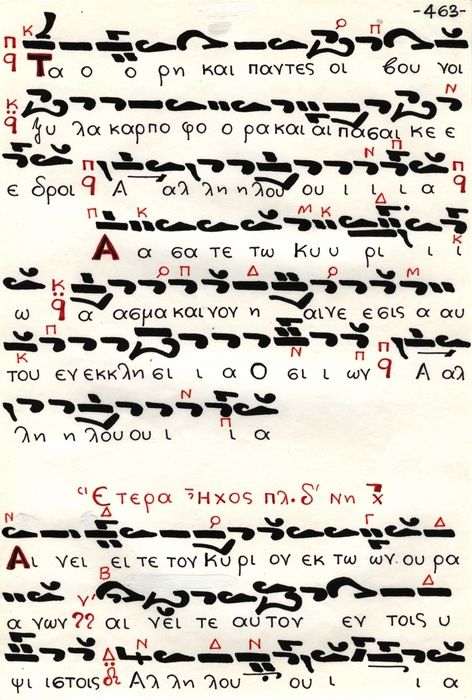 -463-
Τα ο ο ρη και παντες οι βου νοι
ξυ λα καρπο φο ο ρα και αι πασαι κε ε
ε δροι Α αλ λη λη λου ου ι ι ι α
Α α σα τε τω Κυ υ ρι ι ι
ω α ασμα και νον η αινε εσις α αυ
του εν εκκλη σι ι α Ο σι ι ων Α αλ
λη η λου ου ι ι α
Ετερα Ἦχος πλ. δ' Νη
Αι νει ει τε τον Κυ ρι ον εκ τω ων ου ρα
α νων αι νει τε αυ τον εν τοις υ
ψι ιστοις Αλ λη λου ου ι ι α